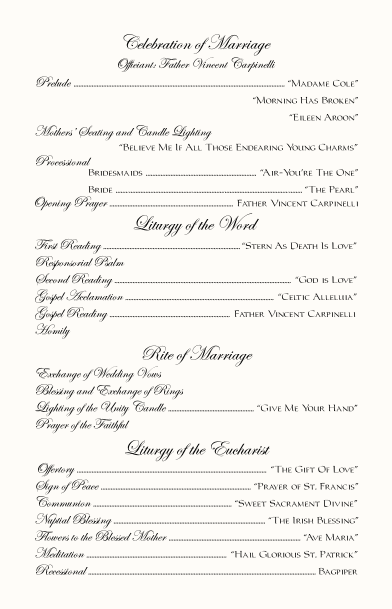 Celebration of Marriage
Officiant: Father Vincent Carpinelli
Prelude "Madame Cole"
"Morning Has Broken"
"Eileen Aroon"
Mothers' Seating and Candle Lighting
"Believe Me If All Those Endearing Young Charms"
Processional
Bridesmaids "Air-You're The One"
Bride "The Pearl"
Opening Prayer Father Vincent Carpinelli
Liturgy of the Word
First Reading "Stern As Death Is Love"
Responsorial Psalm
Second Reading "God is Love"
Gospel Acclamation "Celtic Alleluia"
Gospel Reading Father Vincent Carpinelli
Homily
Rite of Marriage
Exchange of Wedding Vows
Blessing and Exchange of Rings
Lighting of the Unity Candle "Give Me Your Hand"
Prayer of the Faithful
Liturgy of the Eucharist
Offertory "The Gift Of Love"
Sign of Peace "Prayer of St. Francis"
Communion "Sweet Sacrament Divine"
Nuptial Blessing "The Irish Blessing"
Flowers to the Blessed Mother "Ave Maria"
Meditation "Hail Glorious St. Patrick"
Recessional Bagpiper